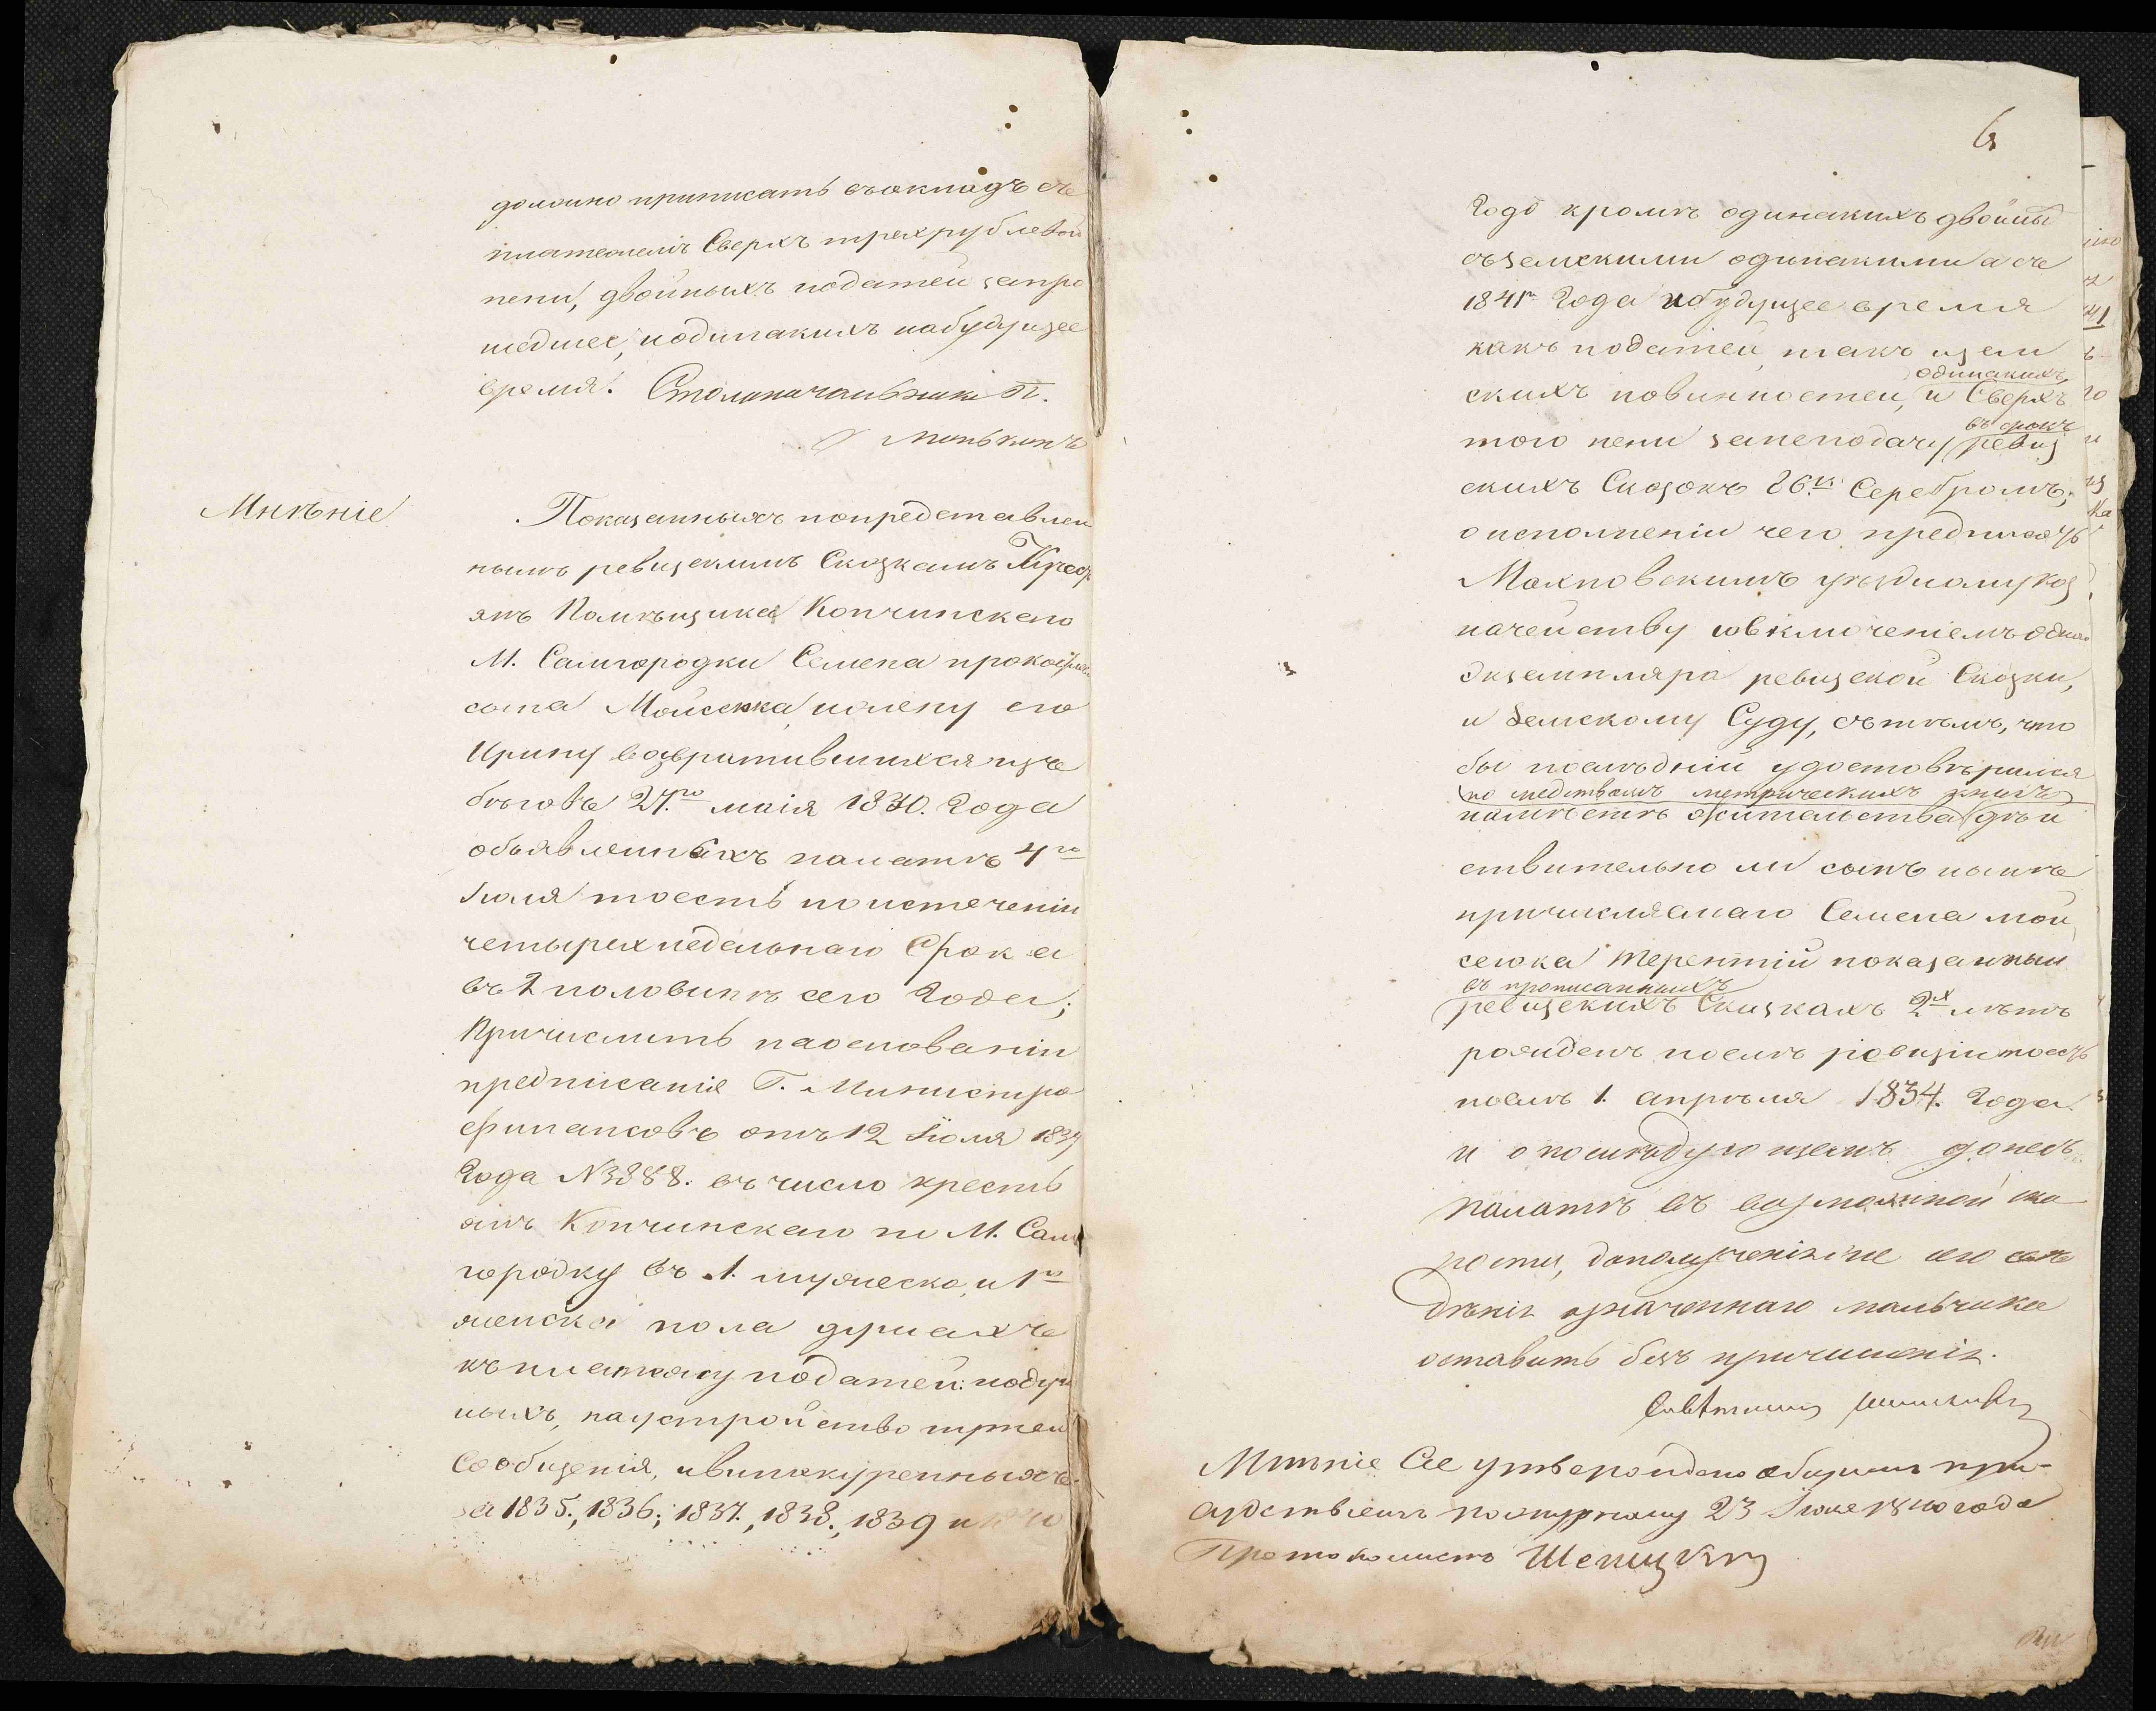 должно приписать въ окладъ съ
платежемъ Сверхъ трехрублевой
пени, двойныхъ податей запро
шедшее, иодинакихъ набудущее
время. Столоначальникъ П.
Мнѣніе
Показанныхъ попредставлен
нымъ ревизскимъ Сказкамъ Крест
янъ Помѣщика Копчинскаго
М. Самгородки Семена
сына Мойсеюка ижену его
Ирину возвратившихся изъ
бѣговъ 27.го маія 1840. Года
объявленныхъ палатѣ 4го
Іюля тоесть поистеченіи
четырехнедельнаго Срока
въ 2 половинѣ сего Года;
Причислить наоснованіи
предписанія Г. Министра
финансовъ отъ 12 Іюля 1839
Года N 3888. въ число кресть
янъ Копчинскаго по М. Сам
городку въ 1. мужеска, и 1й
женска пола душахъ
къ платежу податей: подуш
ныхъ, наустройство путей
Сообщенія, ивинокуренныхъ
за 1835., 1836., 1837., 1838., 1839 и 1840
6
Годъ кромѣ одинакихъ двойны
съземскими одинакими а съ
1841го Года ибудущее время
какъ податей, такъ изем
одинакихъ,
скихъ повинностей, и Сверхъ
въ срокъ
того пени занеподачу ревиз
скихъ Сказокъ 86. к. Серебромъ;
о исполненіи чего предписать
Махновскимъ уѣздному Каз
начейству совключеніемъ одного
Экземпляра ревизской Сказки,
и Земскому Суду, сътѣмъ, что
бы послѣдній удостовѣрился
по средствамъ метрическихъ книгъ
намѣстѣ жительства дѣй
ствительно ли сынъ нынѣ
причисляемаго Семена Мой
сеюка Терентій показанный
въ прописанныхъ
ревизскихъ Сказкахъ 2х лѣтъ
рожденъ послѣ ревизіи тоесть
послѣ 1. апрѣля 1834. Года.
и о послѣдующемъ донесть
палатѣ въ возможной ско
рости, дополученія же его свѣ
дѣнія означеннаго мальчика
оставить безъ причисленія.
Мнѣніе Сіе утверждено общимъ при-
сутствіемъ пожурналу 23 Іюля 1840 года
Протоколистъ